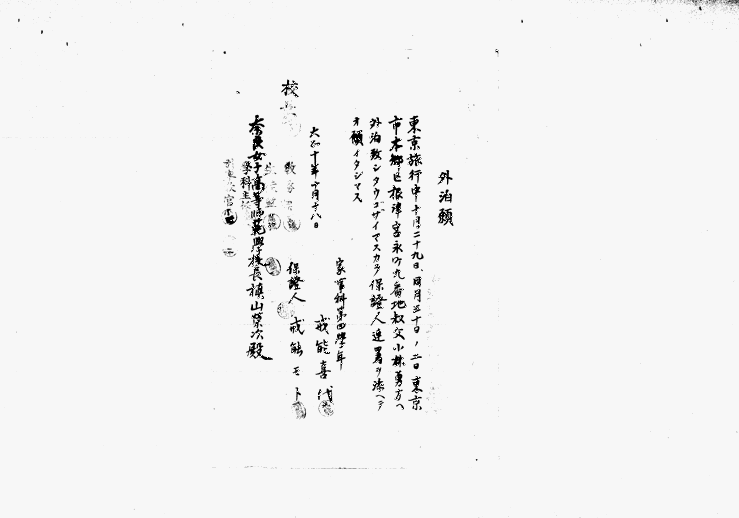 外泊願
東京旅行中十月二十九日、同月三十日ノ二日東京
市本郷区根津宮永町九番地叔父小林勇方ヘ
外泊致シタウゴザイマスカラ保證人連署ヲ添ヘテ
オ願イタシマス
大正十年十月十八日
家事科第四學年
戒能喜代
保證人 戒能モト
奈良女子高等師範學校長槇山榮次殿
校
學科主